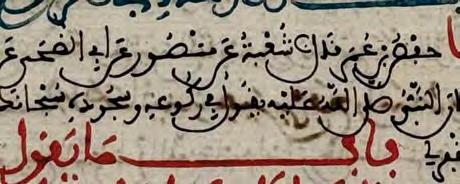 حفص بن عمر قال شعبة عن منصور عن ابي الضحى عن
النبي صلى الله عليه يقول في ركوعه وسجوده سبحانك
باب ما يقول